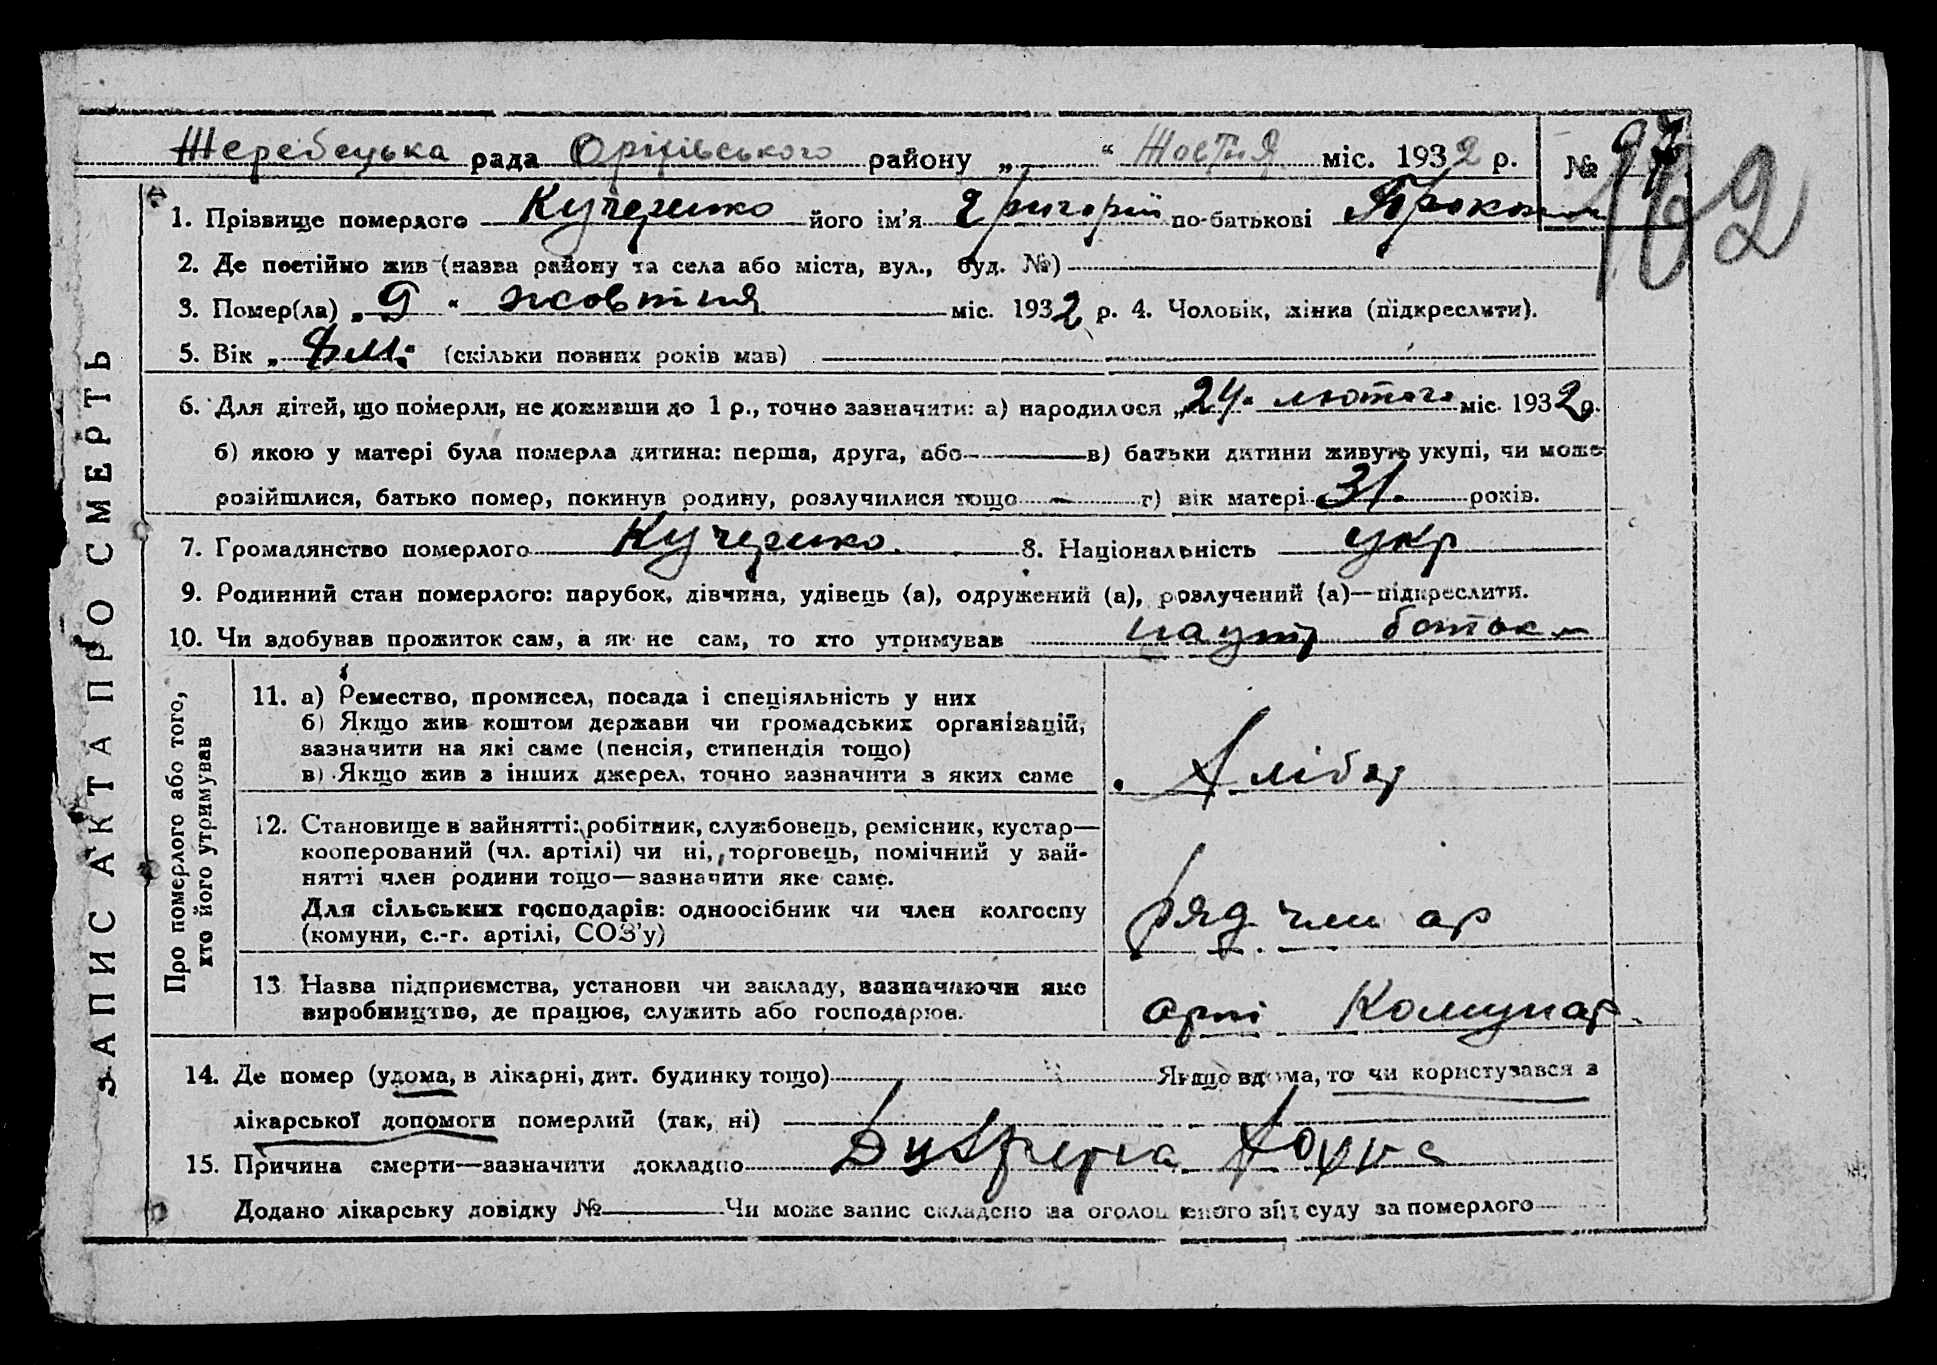 Жеребецька рада Оріхівського району „ “ Жовтня міс. 1932 р. № 97
102
1. Прізвище померлого Кучеренко його ім’я Григорій по-батькові Прокоп
2. Де постійно жив (назва району та села або міста, вул., буд. №)
3. Помер(ла) „9“ жовтня міс. 1932 р. 4. Чоловік, жінка (підкреслити).
5. Вік „ 8 м. (скільки повних років мав)
6. Для дітей, що померли, не доживши до 1 р., точно зазначити: а) народилося „24“ лютого міс. 1932 р.
б) якою у матері була померла дитина: перша, друга, або в) батьки дитини живуть укупі, чи може
розійшлися, батько помер, покинув родину, розлучилися тощо г) вік матері 31 років.
7. Громадянство померлого Кучеренко 8. Національність укр
9. Родинний стан померлого: парубок, дівчина, удівець (а), одружений (а), розлучений (а)—підкреслити.
10. Чи здобував прожиток сам, а як не сам, то хто утримував батьк
11. а) Ремество, промисел, посада і спеціяльність у них
б) Якщо жив коштом держави чи громадських організацій,
зазначити на які саме (пенсія, стипендія тощо)
в) Якщо жив з інших джерел, точно зазначити з яких саме
Хлібор
12. Становище в зайнятті: робітник, службовець, ремісник, кустар—
кооперований (чл. артілі) чи ні, торговець, помічний у зай-
нятті член родини тощо—зазначити яке саме.
Для сільських господарів: одноосібник чи член колгоспу
(комуни, с.-г. артілі, СОЗ’у)
ряд член ар
13 Назва підприємства, установи чи закладу, зазначаючи яке
виробництво, де працює, служить або господарює.
арті Комунар
14. Де помер (удома, в лікарні, дит. будинку тощо) Якщо вдома, то чи користувався з
лікарської допомоги померлий (так, ні)
15. Причина смерти—зазначити докладно
Додано лікарську довідку № Чи може запис складено на оголошеного від суду за померлого
ЗАПИС АКТА ПРО СМЕРТЬ
Про померлого або того,
хто його утримував